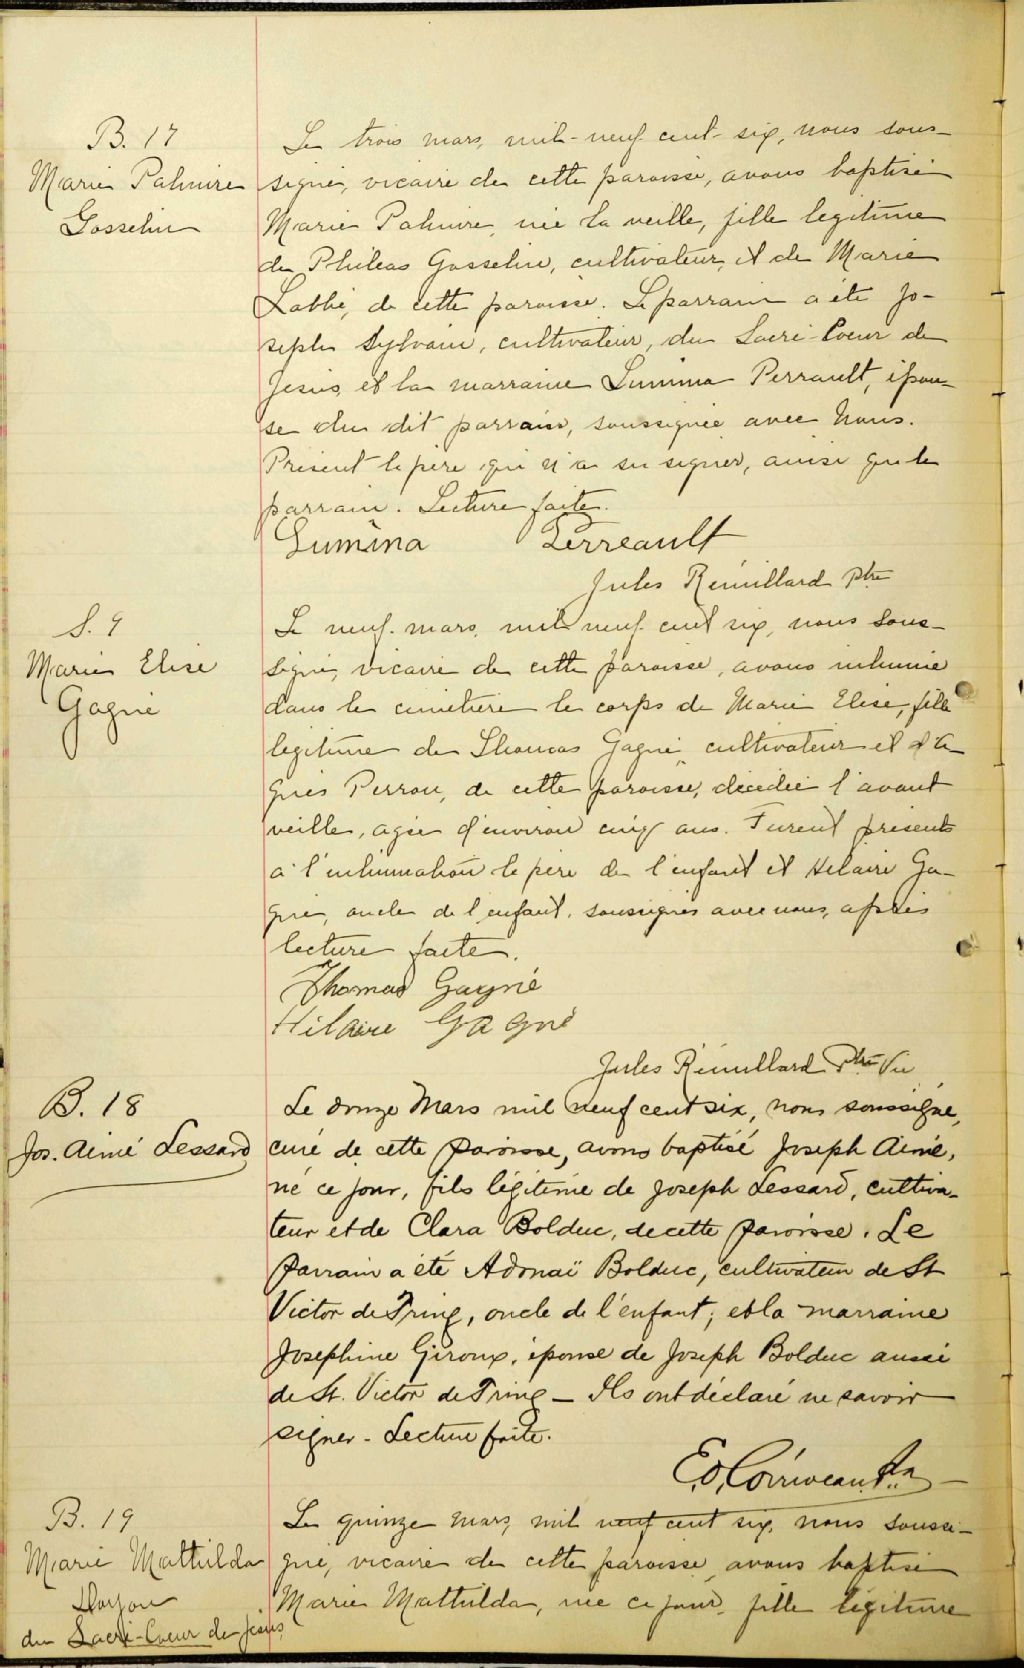 B. 17
Marie Palmire
Gosselin
Le trois mars, mil-neuf cent-six, nous sous-
signé, vicaire de cette paroisse, avons baptisé
Marie Palmire, née la veille, fille légitime
de Philéas Gosselin, cultivateur, et de Marie
Labbé, de cette paroisse. Le parrain a été Jo-
seph Sylvain, cultivateur, du Sacré-Coeur de
Jésus, et la marraine Lumina Perrault, épou-
se du dit parrain, soussignée avec Nous.
Présent le père qui n'a su signer, ainsi que le
parrain. Lecture faite.
Lumina Perreault
Jules Rémillard Ptre
S. 9
Marie Elise
Gagné
Le neuf mars, mil neuf cent six, nous sous-
signé, vicaire de cette paroisse, avons inhumé
dans le cimetière le corps de Marie Elise, fille
légitime de Thomas Gagné, cultivateur et d'A-
gnès Perron, de cette paroisse, décédée l'avant
veille, agée d'environ cinq ans. Furent présents
à l'inhumation le père de l'enfant et Hilaire Ga-
gné, oncle de l'enfant, soussignés avec nous, après
lecture faite.
Thomas Gagné
Hilaire Gagné
Jules Rémillard Ptre Vic
B. 18
Jos. Aimé Lessard
Le douze Mars mil neuf cent six, nous soussigné,
curé de cette paroisse, avons baptisé Joseph Aimé,
né ce jour, fils légitime de Joseph Lessard, cultiva-
teur et de Clara Bolduc, de cette paroisse. Le
parrain a été Adonaï Bolduc, cultivateur de St
Victor de Tring, oncle de l'enfant; et la marraine
Josephine Giroux, épouse de Joseph Bolduc aussi
de St. Victor de Tring – Ils ont déclaré ne savoir
signer – Lecture faite.
Ed. Corriveau Ptre
B. 19
Marie Mathilda
Doyon
du Sacré-Coeur de Jésus
Le quinze mars, mil neuf cent six, nous soussi-
gné, vicaire de cette paroisse, avons baptisé
Marie Mathilda, née ce jour, fille légitime